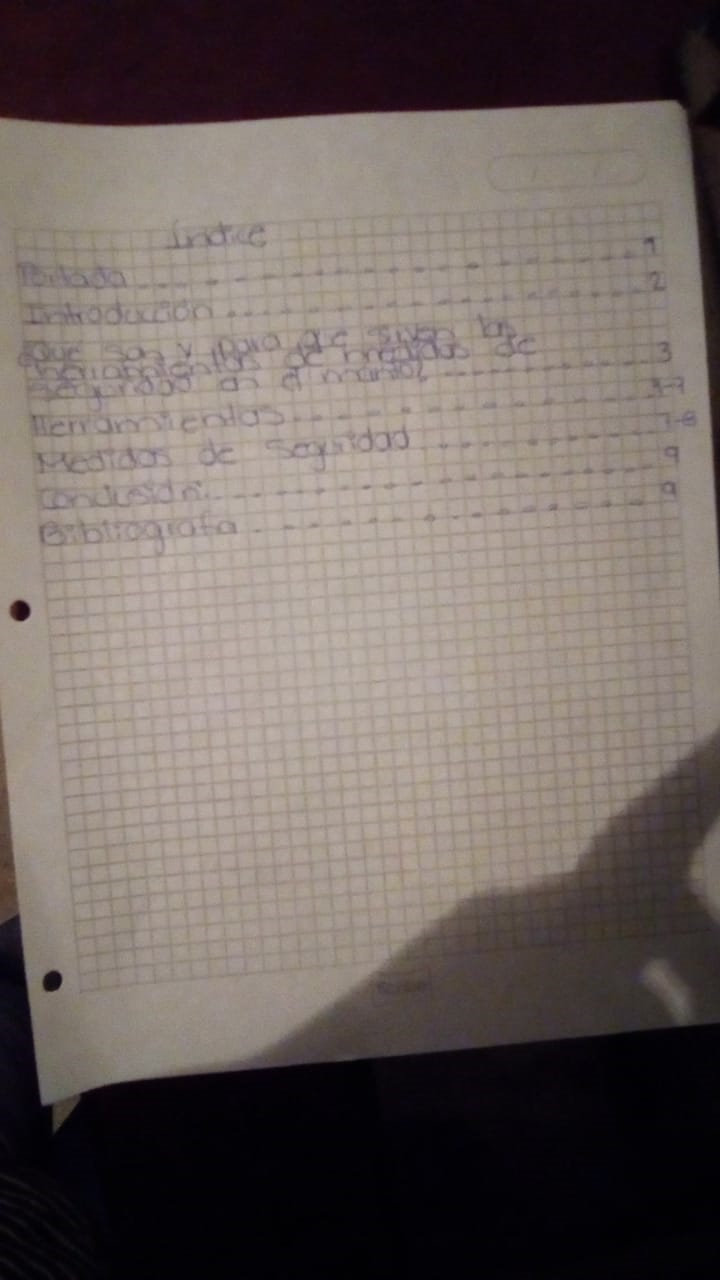 Indice
Portada 1
Introducción 2
Que son y para que sirven las
herramientas de medidas de
seguridad en el 3
Herramientas
Medidas de Seguridad 7-8
Conclusión 9
Bibliografa 9